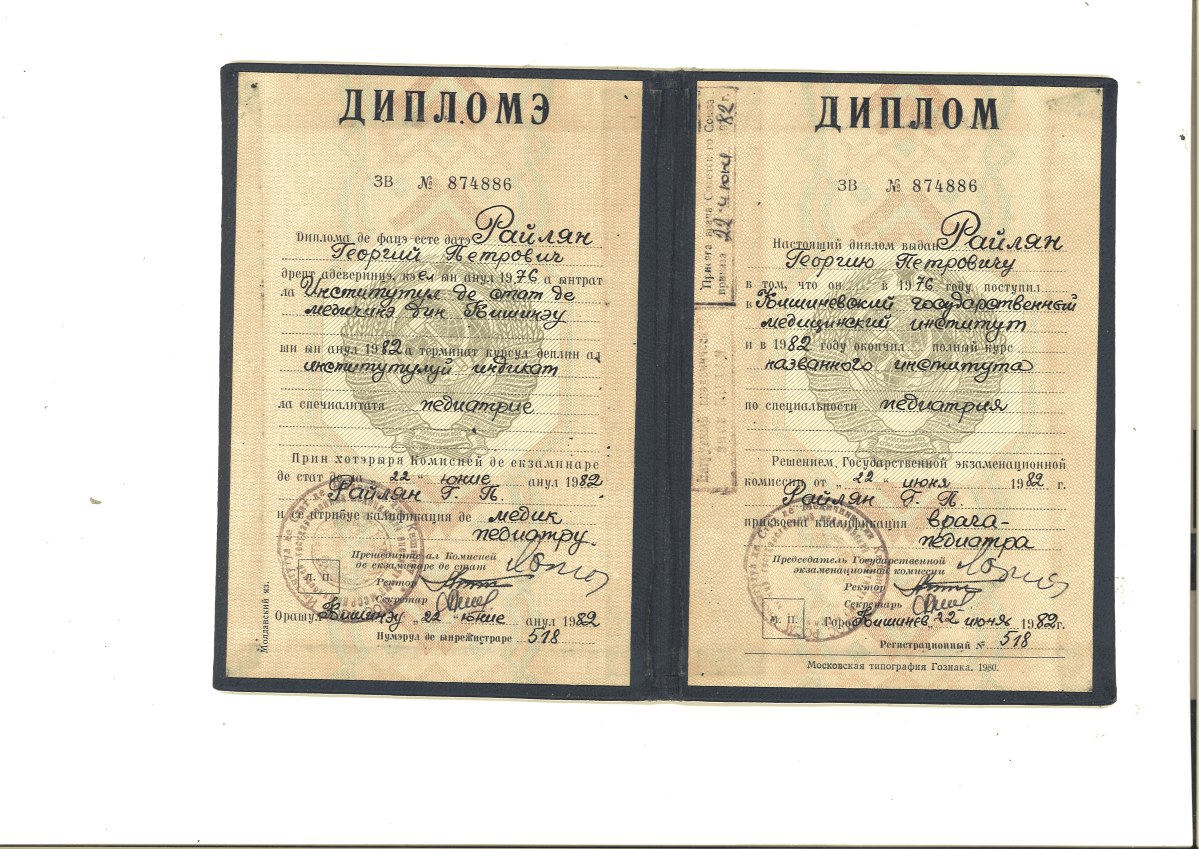 ДИПЛОМЭ
ЗВ № 874886
Диплома де фацэ есте датэ Райлян
Георгий Петрович
дрепт адевериинцэ, кэ ел ын анул 1976 а ынтрат
ла Институтул де стат де
медичинэ дин Кишинэу
ши ын анул 1982 а терминат курсул деплин ал
институтулуй индикат
ла спечиалитатя педиатрие
Прин хотэрыря Комисией де екзаминаре
де стат де ла „22“ юние анул 1982
Райлян Г. П.
и се атрибуе калификация де медик
педиатру.
Прешединтеле ал Комисией
де екзаминаре де стат
Л. П.
Ректор
Секретар
Орашул Кишинэу „22“ юние анул 1982
Нумэрул де ынрежистраре 518
Молдавский яз.
ДИПЛОМ
ЗВ № 874886
Настоящий диплом выдан Райлян
Георгию Петровичу
в том, что он в 1976 году поступил
в Кишиневский государственный
медицинский институт
и в 1982 году окончил полный курс
названного института
по специальности педиатрия
Решением Государственной экзаменационной
комиссии от „22“ июня 1982 г.
Райлян Г. П.
присвоена квалификация врача-
педиатра
Председатель Государственной
экзаменационной комиссии
Ректор
Секретарь
М. П.
Город Кишинев, „22“ июня 1982г.
Регистрационный № 518
Московская типография Гознака. 1980.
Присягу врача Советского Союза
принял 22 июня 1982 г.